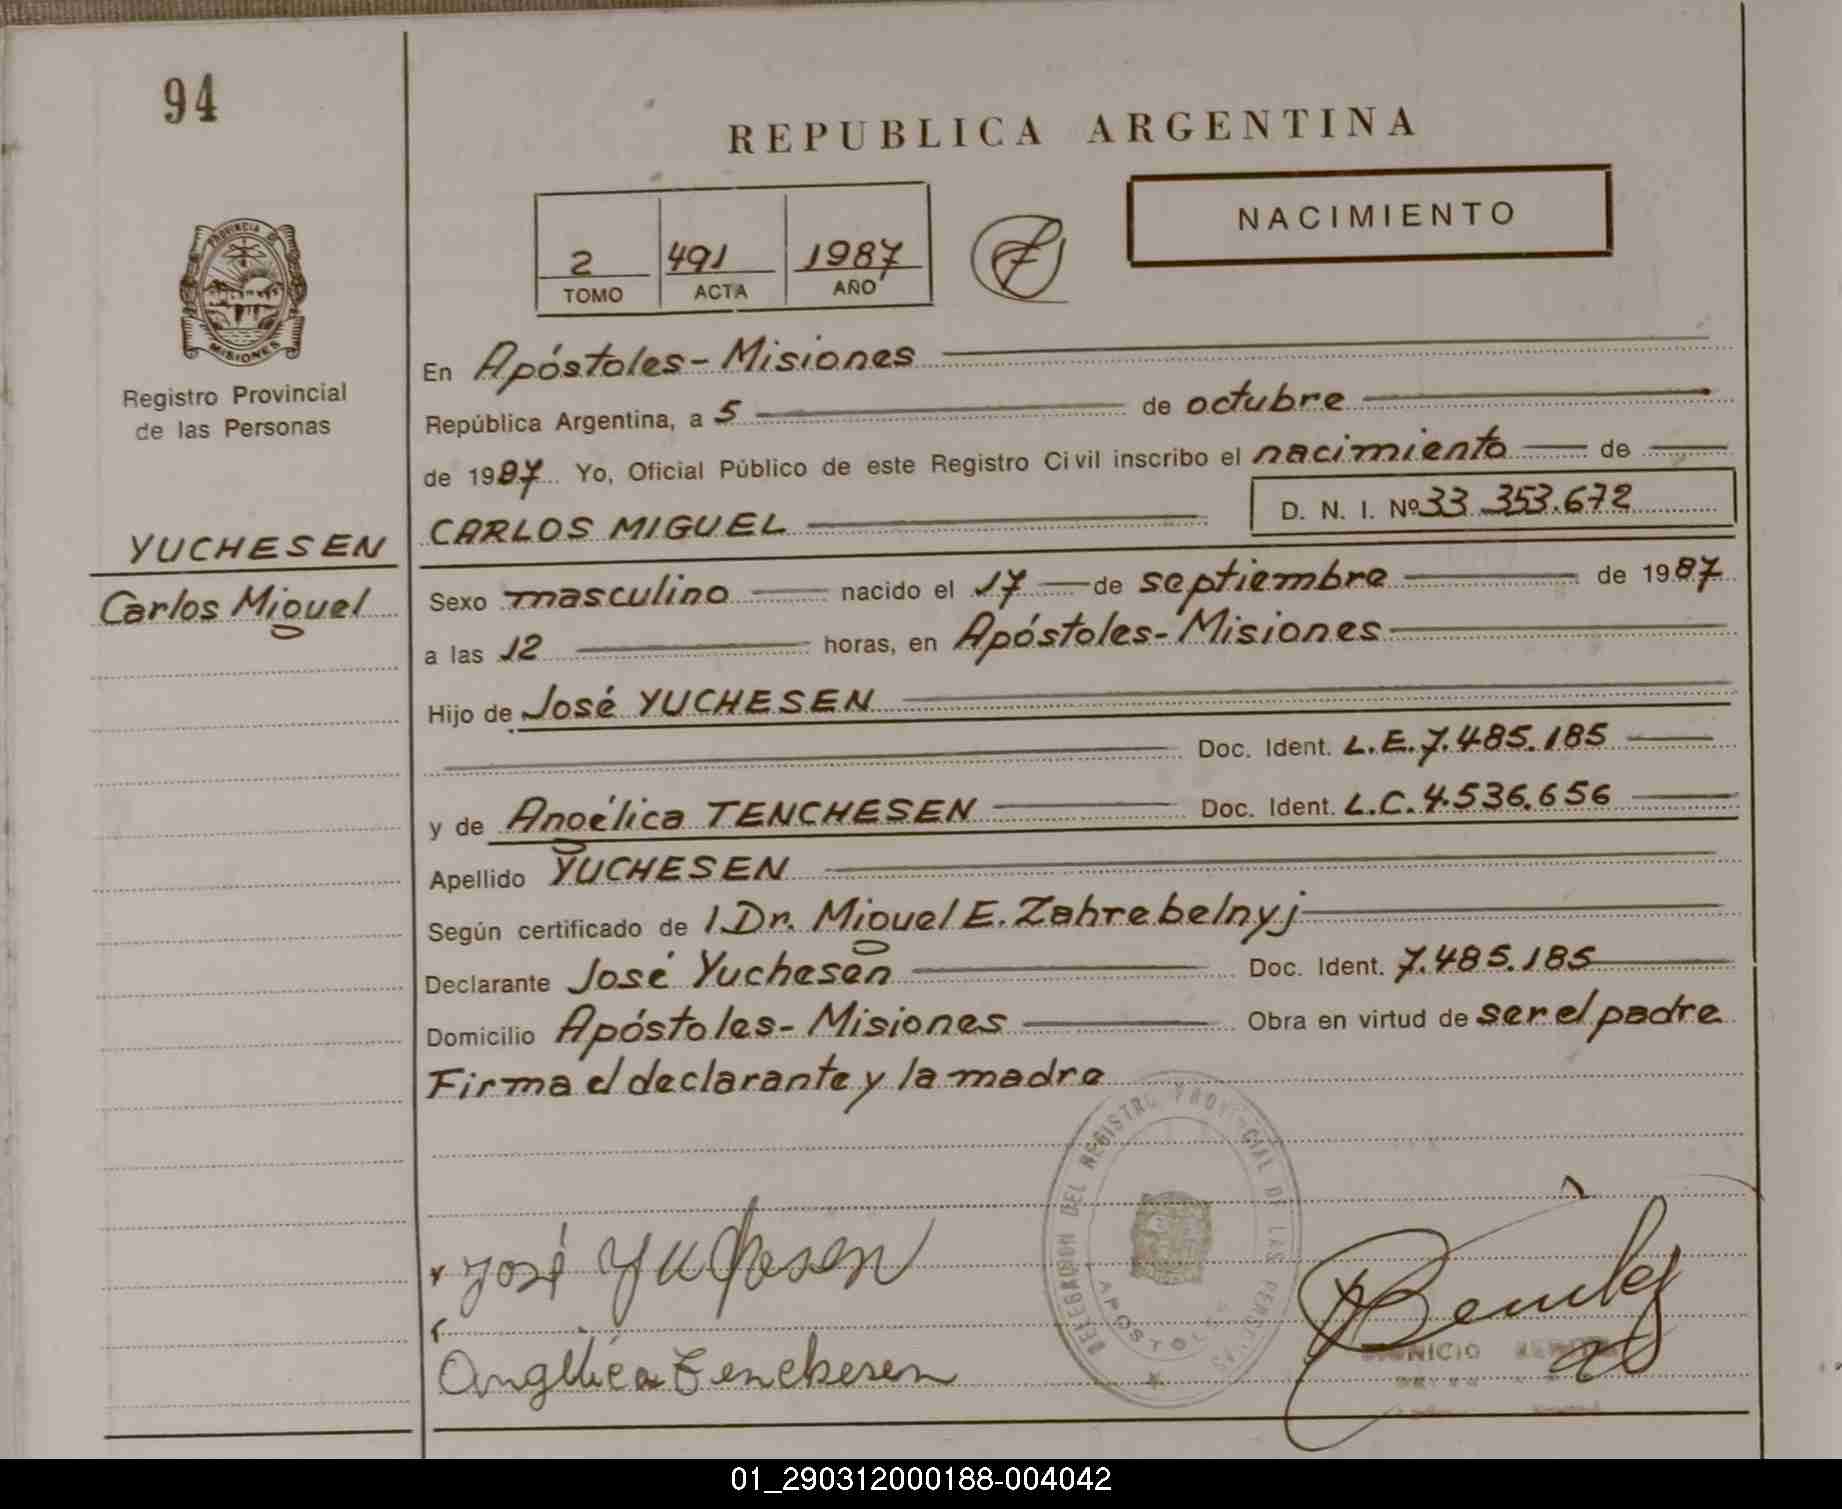 94
REPUBLICA ARGENTINA
NACIMIENTO
2 491 1987
TOMO ACTA AÑO
PROVINCIA DE
MISIONES
Registro Provincial
de las Personas
YUCHESEN
Carlos Miguel
En Apóstoles - Misiones
República Argentina, a 5 de octubre
de 1987 Yo, Oficial Público de este Registro Civil inscribo el nacimiento de
CARLOS MIGUEL D. N. I. Nº 33.353.672
Sexo masculino nacido el 17 de septiembre de 1987
a las 12 horas, en Apóstoles - Misiones
Hijo de José YUCHESEN
Doc. Ident. L.E. 7.485.185
y de Angélica TENCHESEN Doc. Ident. L.C. 4.536.656
Apellido YUCHESEN
Según certificado de l Dr. Miguel E. Zahrebelnyj
Declarante José Yuchesen Doc. Ident. 7.485.185
Domicilio Apóstoles - Misiones Obra en virtud de ser el padre
Firma el declarante y la madre
DELEGACION DEL REGISTRO PROVINCIAL DE LAS PERSONAS
APOSTOLES
José Yuchesen
Angélica Tenchesen
01_290312000188-004042